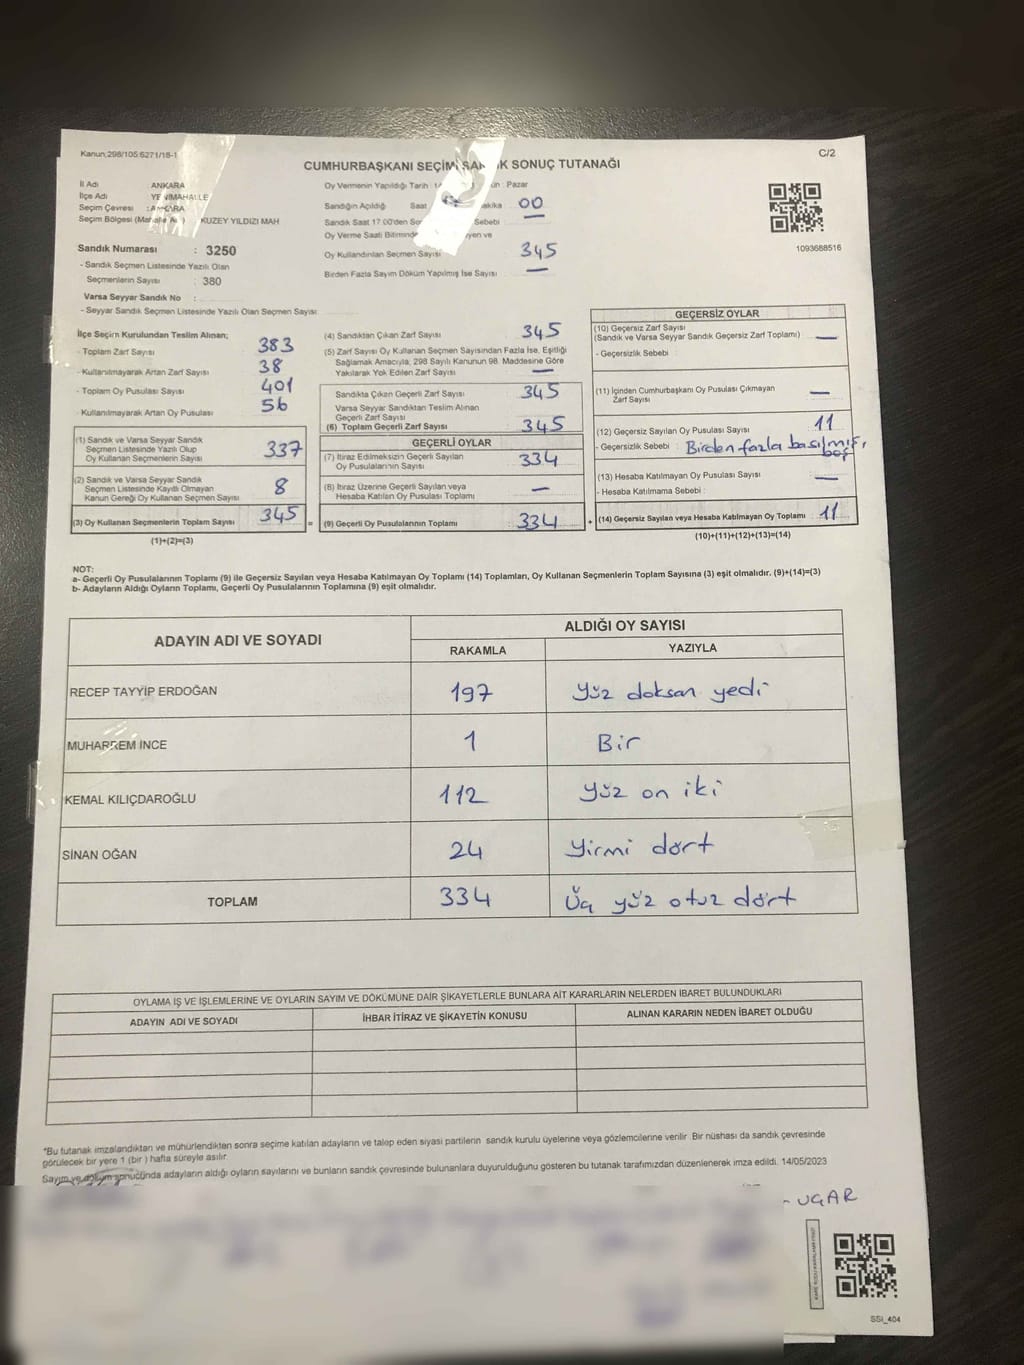 Kanun;298/105;6271/18-1
C/2
CUMHURBAŞKANI SEÇİMİ SONUÇ TUTANAĞI
İl Adı : ANKARA
İlçe Adı : YENİMAHALLE
Seçim Çevresi : ANKARA
Seçim Bölgesi KUZEY YILDIZI MAH
Sandık Numarası : 3250
- Sandık Seçmen Listesinde Yazılı Olan
Seçmenlerin Sayısı : 380
Varsa Seyyar Sandık No :
- Seyyar Sandık Seçmen Listesinde Yazılı Olan Seçmen Sayısı
Oy Vermenin Yapıldığı Tarih : Pazar
Sandığın Açıldığı Saat 00
Sandık Saat 17:00'den Sebebi
Oy Verme Saati Bitiminde
Oy Kullandırılan Seçmen Sayısı 345
Birden Fazla Sayım Döküm Yapılmış İse Sayısı —
1093688516
İlçe Seçim Kurulundan Teslim Alınan;
- Toplam Zarf Sayısı 383
- Kullanılmayarak Artan Zarf Sayısı 38
- Toplam Oy Pusulası Sayısı 401
- Kullanılmayarak Artan Oy Pusulası 56
(1) Sandık ve Varsa Seyyar Sandık
Seçmen Listesinde Yazılı Olup
Oy Kullanan Seçmenlerin Sayısı 337
(2) Sandık ve Varsa Seyyar Sandık
Seçmen Listesinde Kayıtlı Olmayan
Kanun Gereği Oy Kullanan Seçmen Sayısı 8
(3) Oy Kullanan Seçmenlerin Toplam Sayısı 345 =
(1)+(2)=(3)
(4) Sandıktan Çıkan Zarf Sayısı 345
(5) Zarf Sayısı Oy Kullanan Seçmen Sayısından Fazla İse, Eşitliği
Sağlamak Amacıyla, 298 Sayılı Kanunun 98. Maddesine Göre
Yakılarak Yok Edilen Zarf Sayısı —
Sandıkta Çıkan Geçerli Zarf Sayısı 345
Varsa Seyyar Sandıktan Teslim Alınan
Geçerli Zarf Sayısı
(6) Toplam Geçerli Zarf Sayısı 345
GEÇERLİ OYLAR
(7) İtiraz Edilmeksizin Geçerli Sayılan
Oy Pusulalarının Sayısı 334
(8) İtiraz Üzerine Geçerli Sayılan veya
Hesaba Katılan Oy Pusulası Toplamı —
(9) Geçerli Oy Pusulalarının Toplamı 334 +
GEÇERSİZ OYLAR
(10) Geçersiz Zarf Sayısı
(Sandık ve Varsa Seyyar Sandık Geçersiz Zarf Toplamı) —
- Geçersizlik Sebebi :
(11) İçinden Cumhurbaşkanı Oy Pusulası Çıkmayan
Zarf Sayısı —
(12) Geçersiz Sayılan Oy Pusulası Sayısı 11
- Geçersizlik Sebebi : Birden fazla basılmış,
boş
(13) Hesaba Katılmayan Oy Pusulası Sayısı —
- Hesaba Katılmama Sebebi :
(14) Geçersiz Sayılan veya Hesaba Katılmayan Oy Toplamı 11
(10)+(11)+(12)+(13)=(14)
NOT:
a- Geçerli Oy Pusulalarının Toplamı (9) ile Geçersiz Sayılan veya Hesaba Katılmayan Oy Toplamı (14) Toplamları, Oy Kullanan Seçmenlerin Toplam Sayısına (3) eşit olmalıdır. (9)+(14)=(3)
b- Adayların Aldığı Oyların Toplamı, Geçerli Oy Pusulalarının Toplamına (9) eşit olmalıdır.
ADAYIN ADI VE SOYADI
ALDIĞI OY SAYISI
RAKAMLA YAZIYLA
RECEP TAYYİP ERDOĞAN 197 Yüz doksan yedi
MUHARREM İNCE 1 Bir
KEMAL KILIÇDAROĞLU 112 Yüz on iki
SİNAN OĞAN 24 Yirmi dört
TOPLAM 334 Üç yüz otuz dört
OYLAMA İŞ VE İŞLEMLERİNE VE OYLARIN SAYIM VE DÖKÜMÜNE DAİR ŞİKAYETLERLE BUNLARA AİT KARARLARIN NELERDEN İBARET BULUNDUKLARI
ADAYIN ADI VE SOYADI İHBAR İTİRAZ VE ŞİKAYETİN KONUSU ALINAN KARARIN NEDEN İBARET OLDUĞU
*Bu tutanak imzalandıktan ve mühürlendikten sonra seçime katılan adayların ve talep eden siyasi partilerin sandık kurulu üyelerine veya gözlemcilerine verilir. Bir nüshası da sandık çevresinde
görülecek bir yere 1 (bir) hafta süreyle asılır.
Sayım ve döküm sonucunda adayların aldığı oyların sayılarını ve bunların sandık çevresinde bulunanlara duyurulduğunu gösteren bu tutanak tarafımızdan düzenlenerek imza edildi. 14/05/2023
UGAR
SSI_404